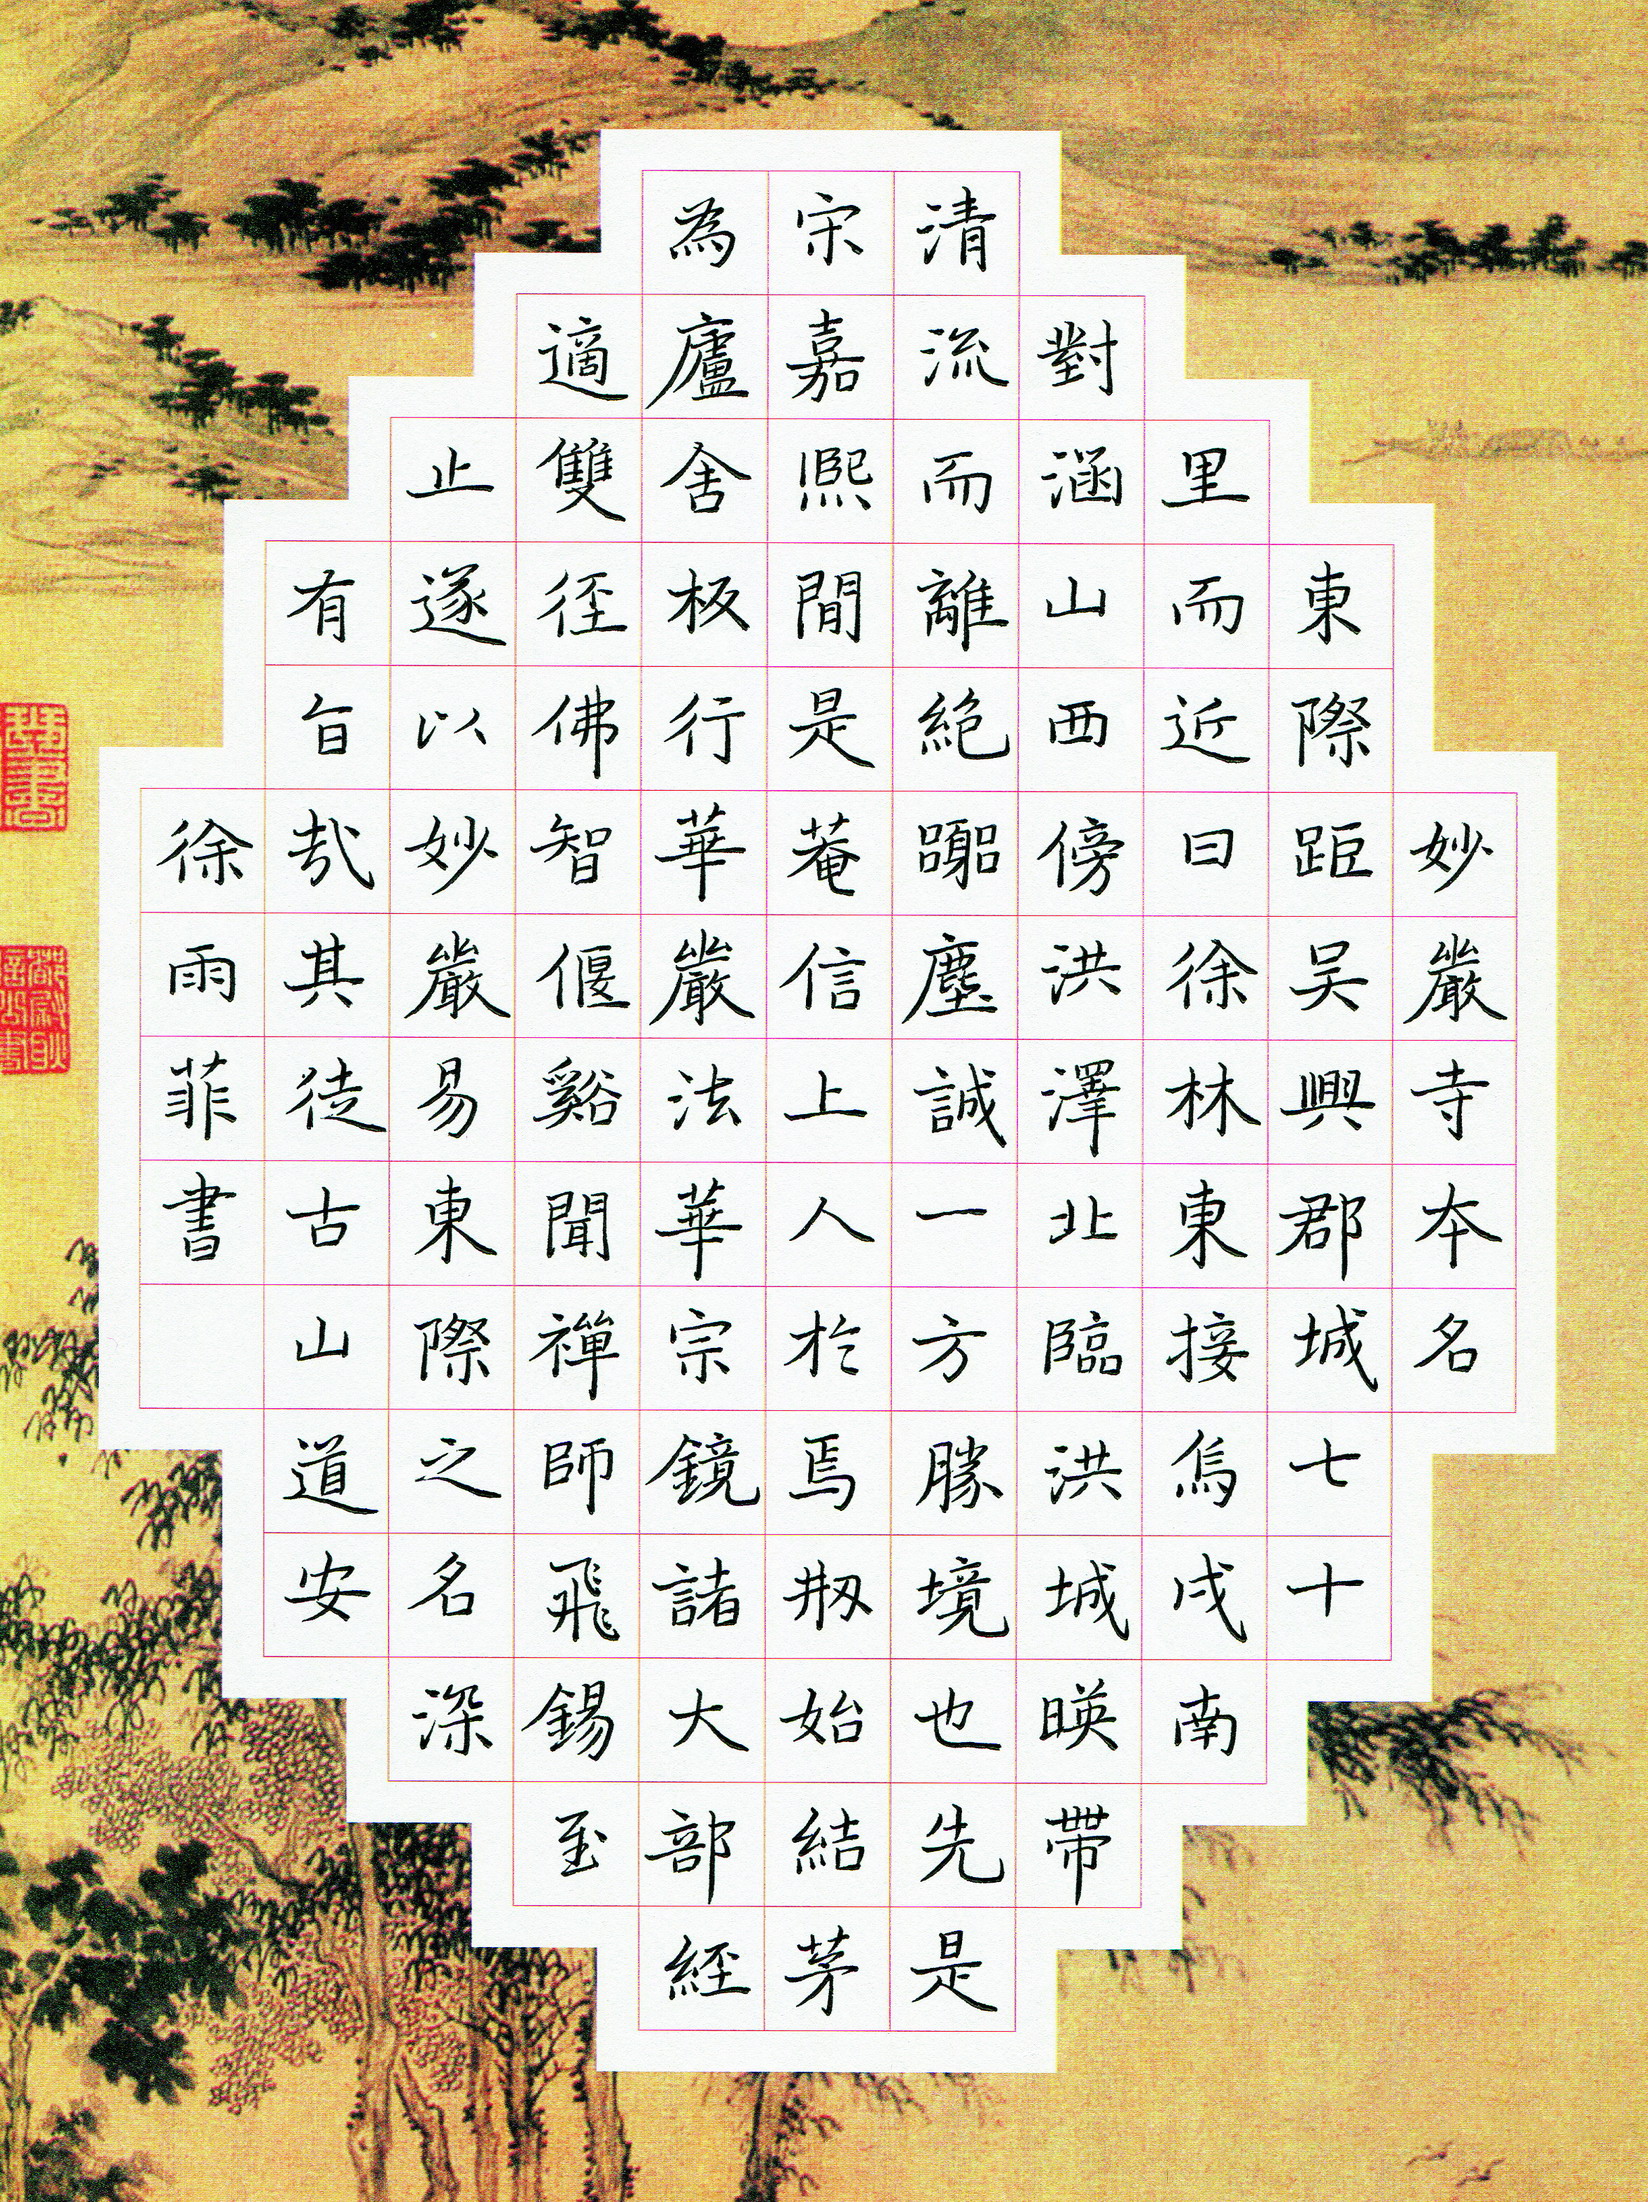 妙嚴寺本名
東際距吴興郡城七十
里而近曰徐林東接烏戍南
對涵山西傍洪澤北臨洪城暎帶
清流而離絶嚻塵誠一方勝境也先是
宋嘉熙間是菴信上人於焉剏始結茅
為廬舍板行華嚴法華宗鏡諸大部經
適雙徑佛智偃谿聞禪師飛錫至
止遂以妙嚴易東際之名深
有旨哉其徒古山道安
徐雨菲書